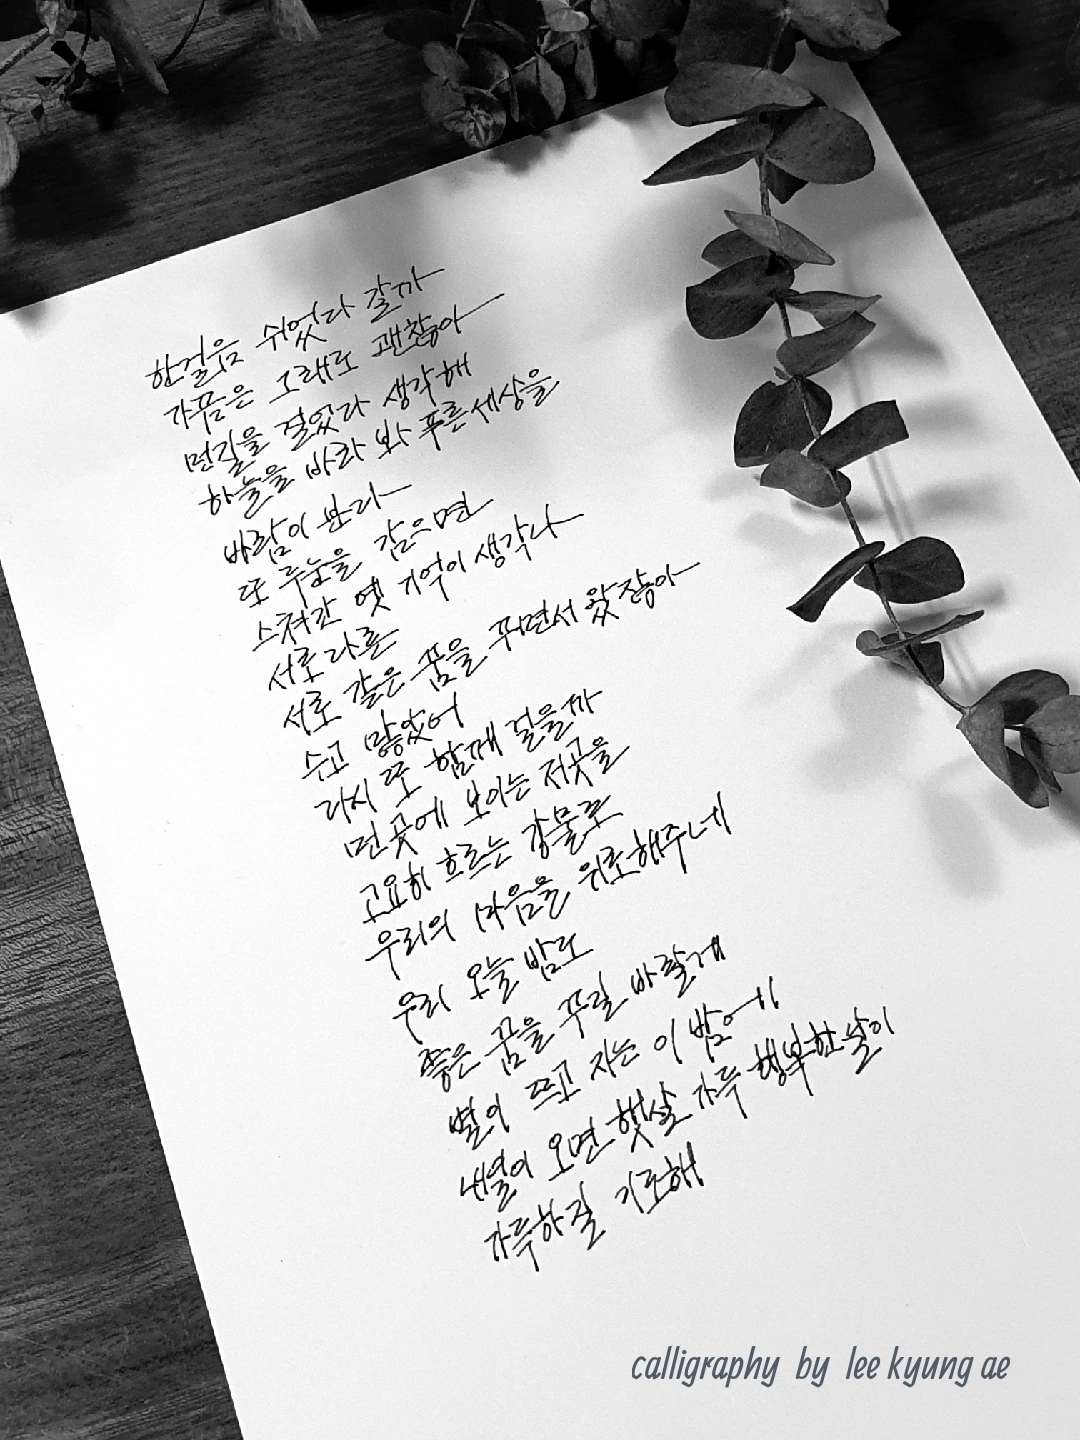 한걸음 쉬었다 갈까
가끔은 그래도 괜찮아
먼길을 걸었다 생각해
하늘을 바라 봐 푸른세상을
바람이 분다
또 두눈을 감으면
스쳐간 옛 기억이 생각나
서로 다른
서로 같은 꿈을 꾸면서 왔잖아
수고 많았어
다시 또 함께 걸을까
먼 곳에 보이는 저곳을
고요히 흐르는 강물로
우리의 마음을 위로해주네
우리 오늘 밤도
좋은 꿈을 꾸길 바랄게
별이 뜨고 지는 이 밤에
내일이 오면 햇살 가득 행복한 날이
가득하길 기도해
calligraphy by lee kyung ae